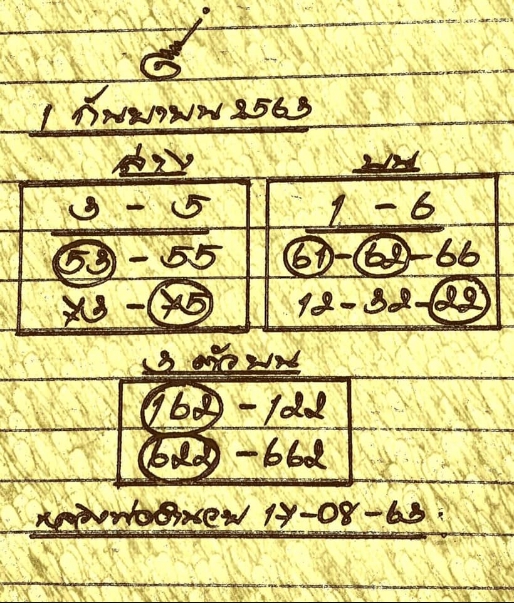 1 กันยายน 2563
ล่าง บน
3 - 5 1 - 6
53 - 55 61 - 62 - 66
73 - 75 12 - 32 - 22
3 ตัวบน
162 - 122
622 - 662
หลวงพ่ออำนวย 17-08-63